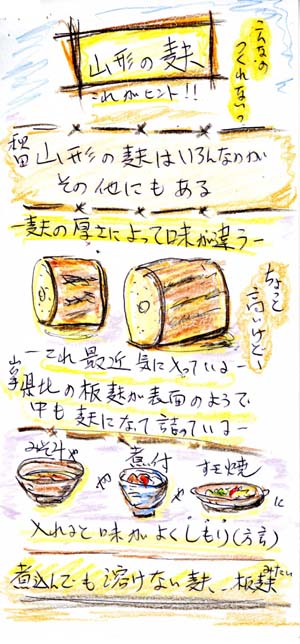 山形の麩
これがヒント!!
山形の麩はいろんなのが
その他にもある
ー麩の厚さによって味が違うー
ちょっと
高いけどー
ーこれ最近気に入っているー
県北の板麩が表面のようで
中も麩になて詰っているー
みそ汁
や
煮付
や
すき焼
に
入れると味がよくしもり(方言)
煮込んでも溶けない麩、板麩みたい